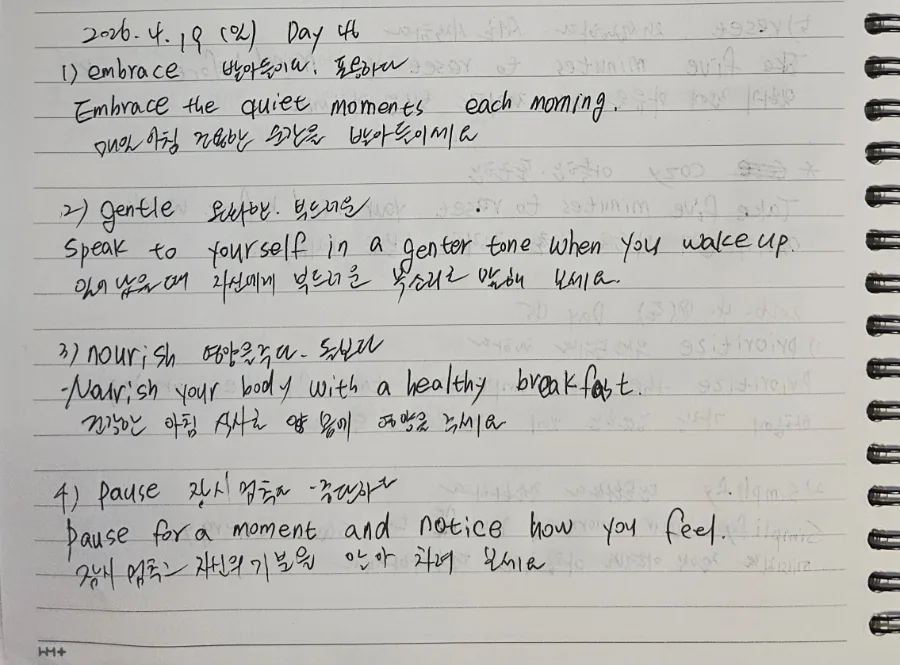 2026.4.19 (일) Day 46
1) embrace 받아들이다. 포용하다
Embrace the quiet moments each morning.
매일 아침 고요한 순간을 받아들이세요
2) gentle 온화한. 부드러운
speak to yourself in a genter tone when you wake up
일어났을 때 자신에게 부드러운 목소리로 말해 보세요.
3) nourish 영양을주다. 돌보다
-Nourish your body with a healthy breakfast.
건강한 아침 식사로 몸에 영양을 주세요
4) pause 잠시 멈추다 -중단하다
Pause for a moment and notice how you feel.
잠시 멈추고 자신의 기분을 알아 차려 보세요